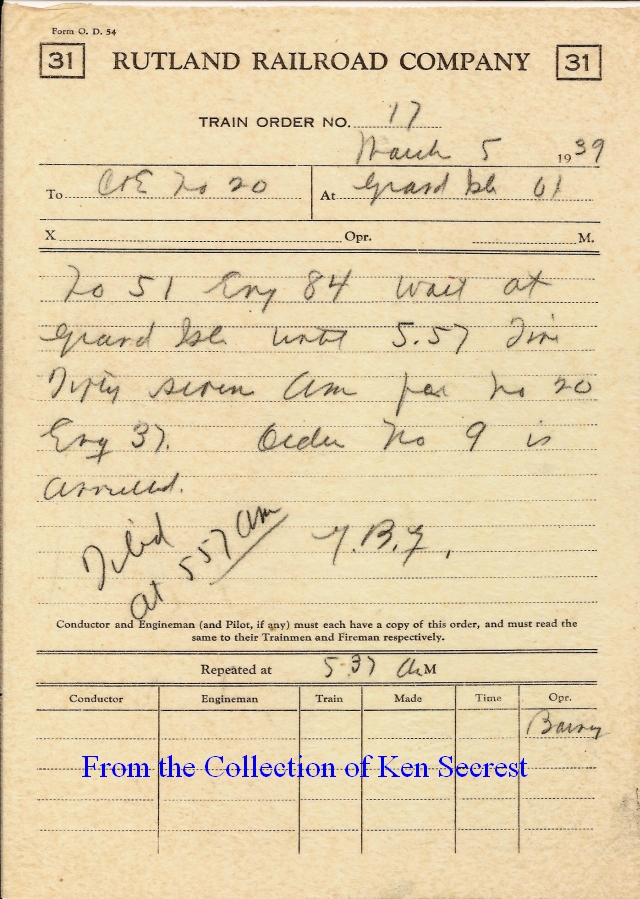 Form O. D. 54
31 RUTLAND RAILROAD COMPANY 31
TRAIN ORDER NO. 17
March 5 1939
To C&E No 20 At Grand Isle
X Opr. M.
No 51 Eng 84 wait at
Grand Isle until 5.57 Five
Fifty seven Am for No 20
Eng 37. Order No 9 is
annulled.
at 557 am
Conductor and Engineman (and Pilot, if any) must each have a copy of this order, and must read the
same to their Trainmen and Fireman respectively.
Repeated at 5 37 AM
Conductor Engineman Train Made Time Opr.
From the Collection of Ken Secrest